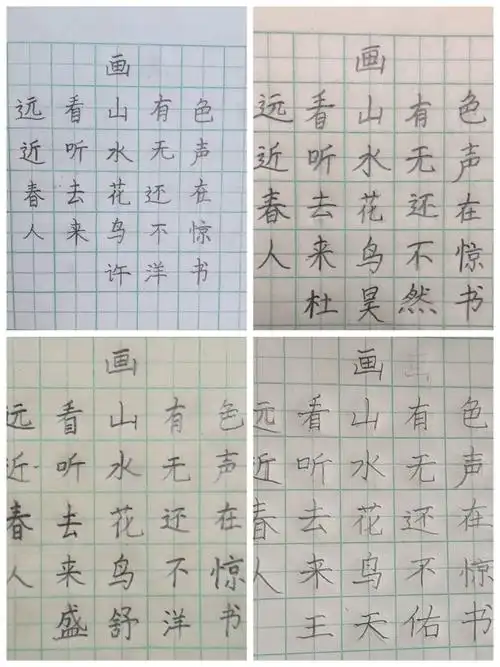 画
远看山有色
近听水无声
春去花还在
人来鸟不惊
许洋书
画
远看山有色
近听水无声
春去花还在
人来鸟不惊
杜昊然书
画
远看山有色
近听水无声
春去花还在
人来鸟不惊
盛舒洋书
画
远看山有色
近听水无声
春去花还在
人来鸟不惊
王天佑书